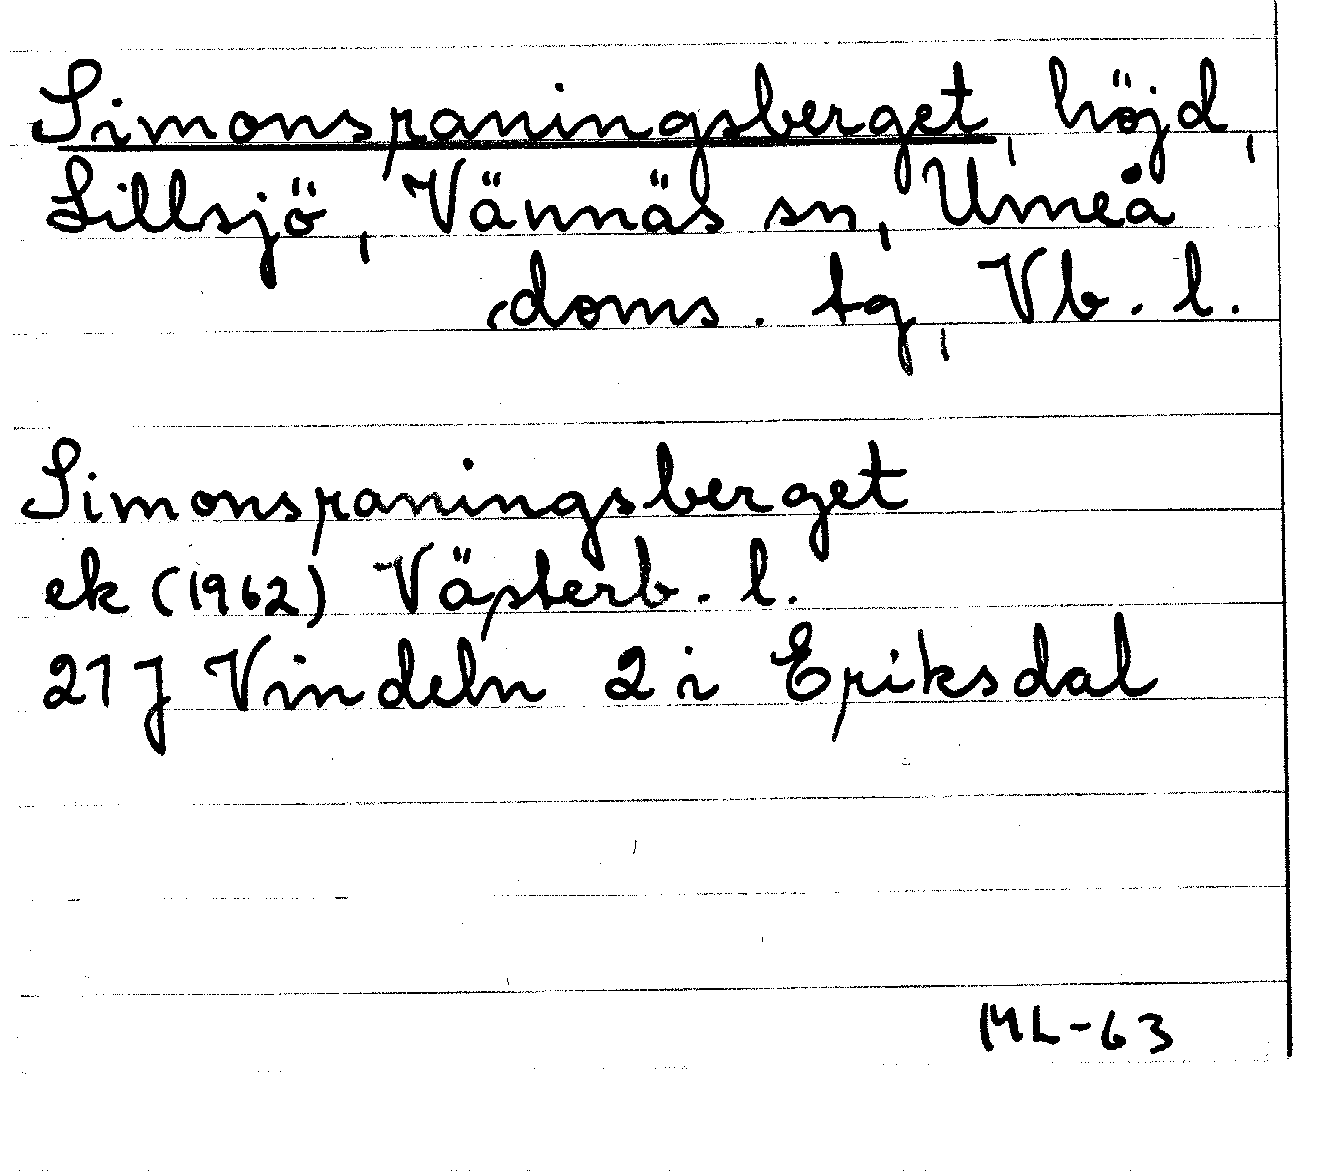 Simonsraningsberget, höjd,
Lillsjö, Vännäs sn, Umeå
doms. tg, Vb. l.
Simonsraningsberget
ek (1962) Västerb. l.
21 J Vindeln 2 i Eriksdal
ML-63